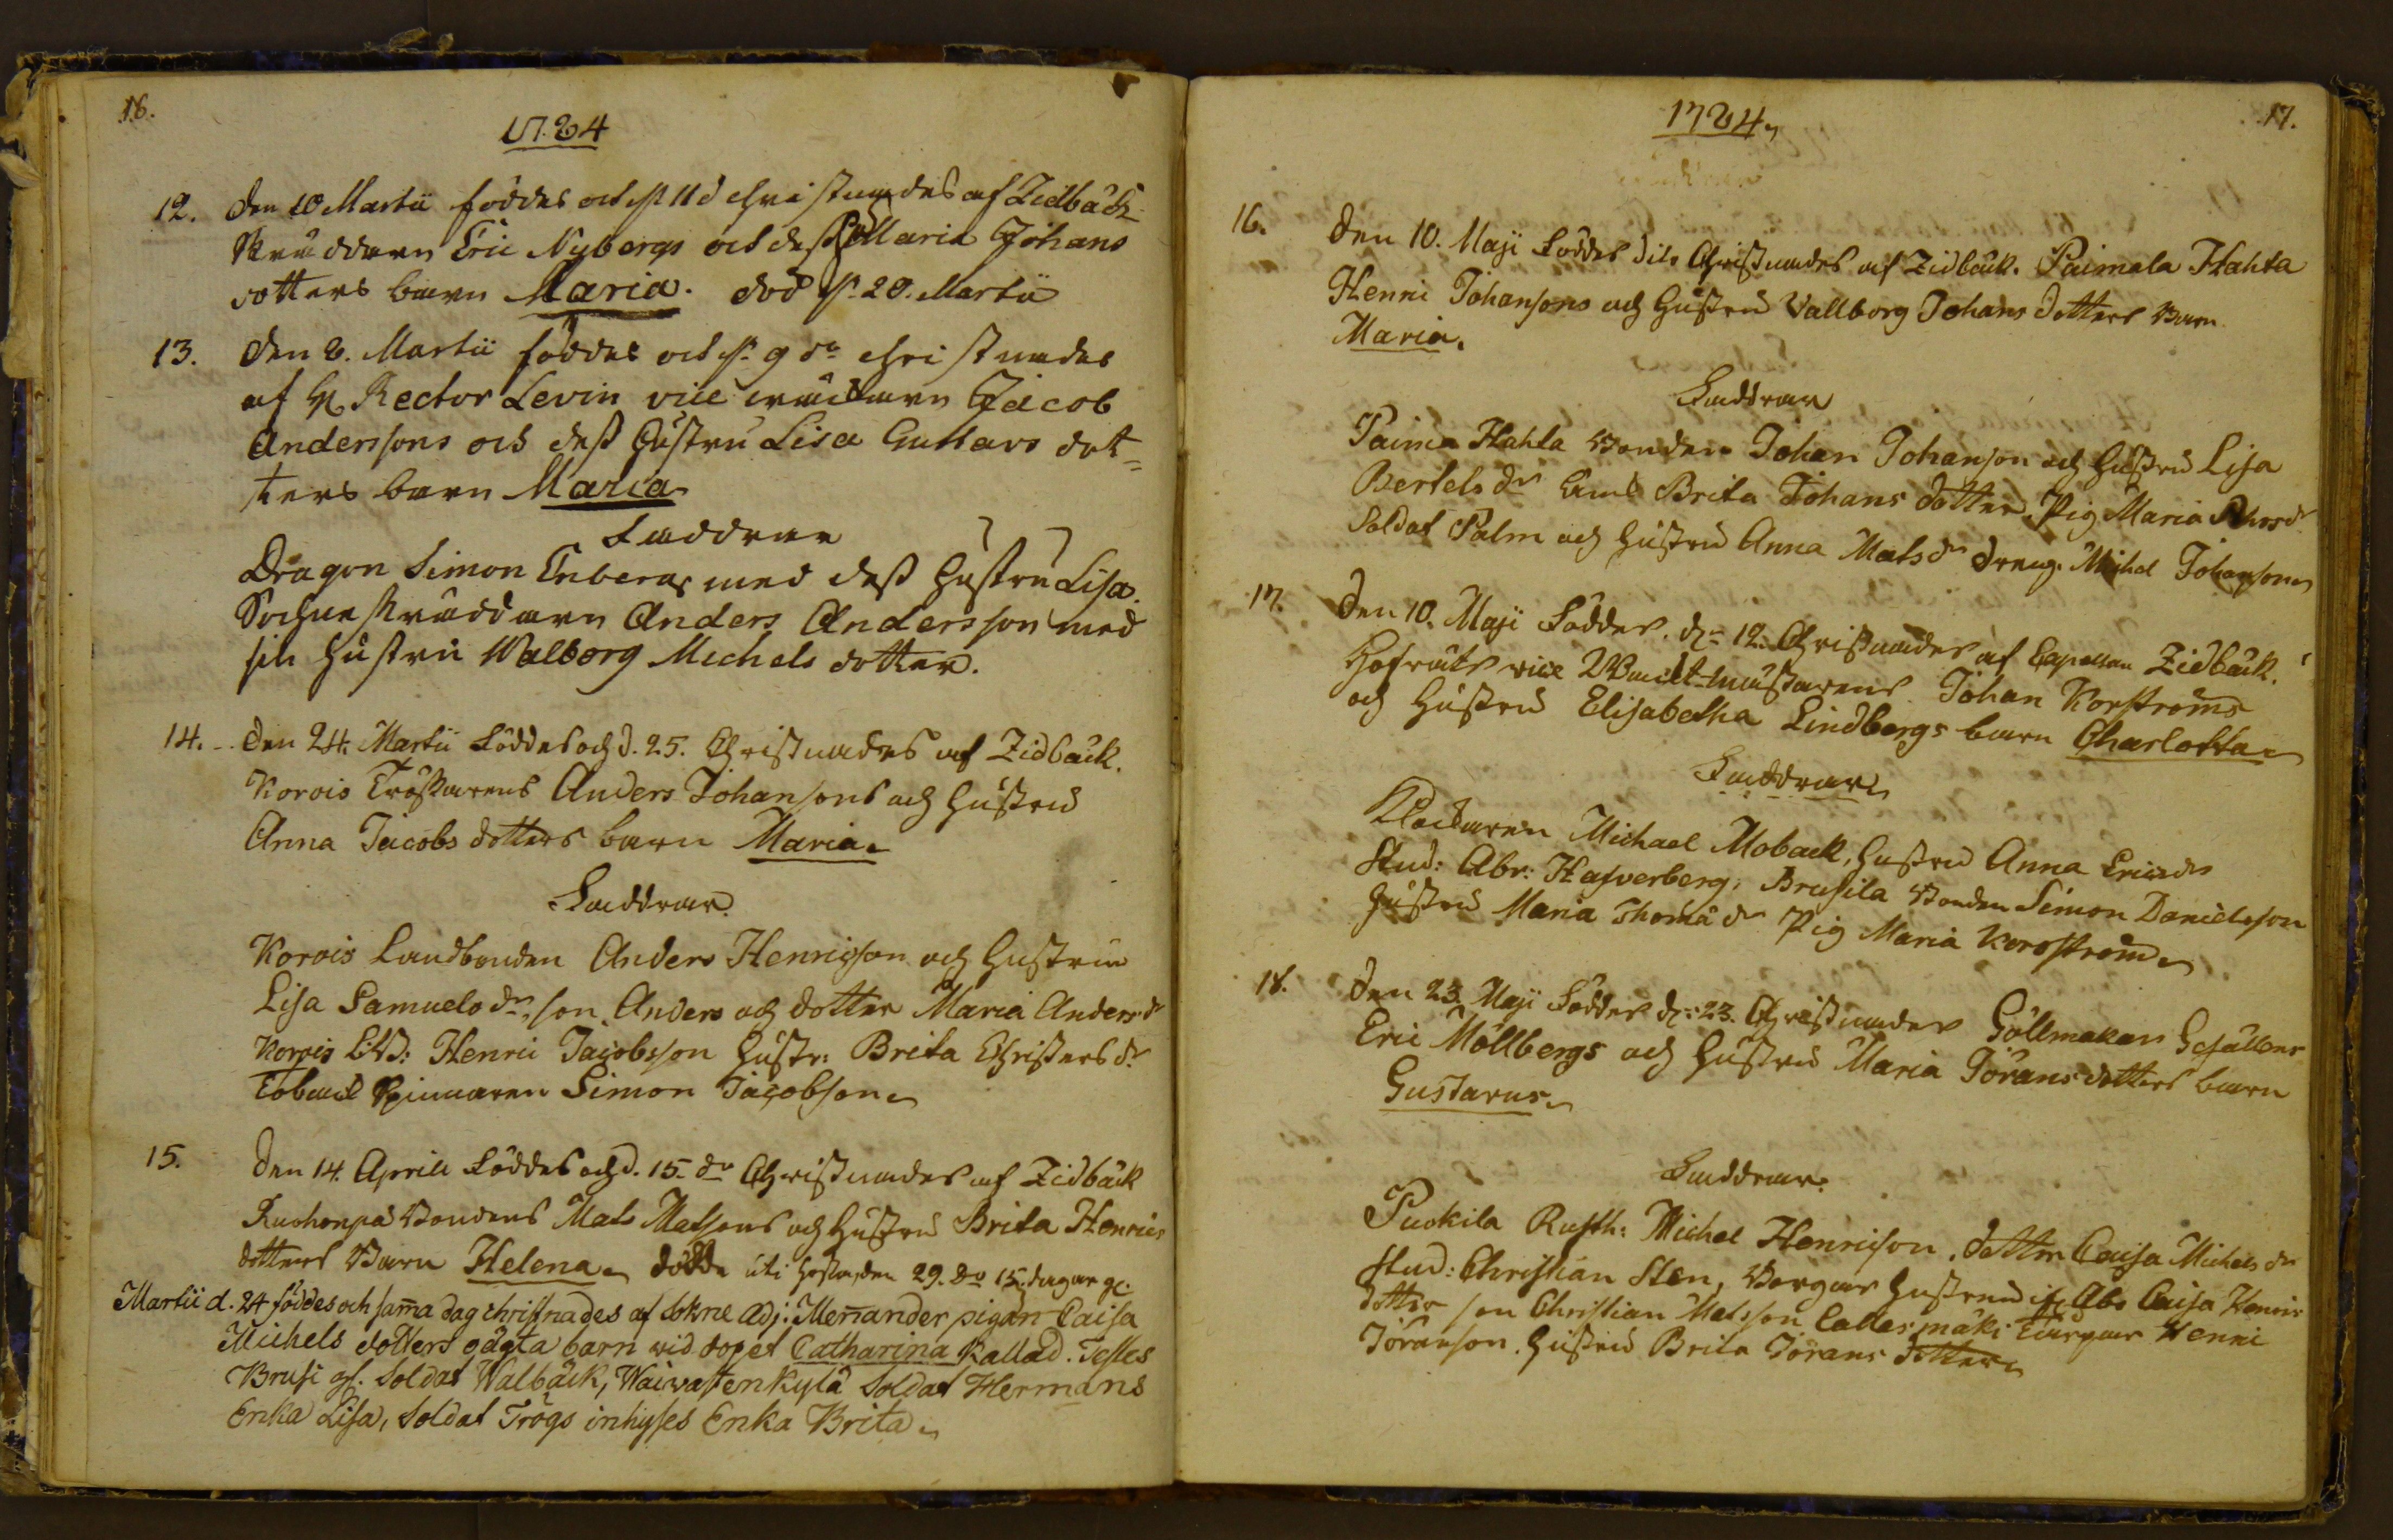 16.
1784
12. den 10 Martii föddes och d. 11 d christnades af Zidbäck
Skräddarn Eric Nybergs och dess h. Maria Johans
dotters barn Maria. död d. 20. Martii
13. den 8. Martii föddes och d. 9 dr christnades
af H. Rector Levin vice Jacob
Anderssons och dess Hustru Lisa Gustavs dot=
ters barn Maria
Faddrar
Dragon Simon Enberg med dess Hustru Lisa.
Sockne skräddarn Anders Andersson med
sin Hustru Walborg Michels dotter.
14. den 24. Martii Föddes och d. 25. Christnades af Zidbäck.
Korois Anders Johansons och Hustru
Anna Jacobs dotters barn Maria
Faddrar.
Korois Landbonden Anders Henricson och Hustru
Lisa Samuels dr, son Anders och dotter Maria Anders dr
Korois LB: Henric Jacobsson Hustr: Brita Christers dr.
Tobaks Spinnaren Simon Jacobson
15. Den 14. Aprill Föddes och d. 15. dr Christnades af Zidbäck
Ruohonpä Bondens Mats Matsons och Hustru Brita Henrics
dotters Barn Helena död uti hosta, den 29. Do 15. dagar gl.
Martii d. 24 föddes och sam̄a dag christnades af Sokne Adj: Men̄ander pigan Caisa
Michels dotters oägta barn wid dopet Catharina kallad. Testes
Brusi gl. Soldat Walbäck, Waiwatenkylä Soldat Hermans
Enka Lisa, Soldat Trögs inhyses Enka Brita
17.
1784
16. Den 10. Maji Föddes dito Christnades af Zidbäck. Paimala Hahta
Henric Johansons och Hustru Vallborg Johans dotters Barn
Maria.
Faddrar
Paimala Hahta Bonden Johan Johanson och Hustru Lisa
Bertels dr Brita Johans dotter, Pig Maria dr
Soldat Palm och Hustru Anna Mats dr dreng. Michel Johanson
17. Den 10. Maji Föddes. d: 12. Christnades af Capellan Zidbäck.
Hofräts vice Wackt-mästarens Johan Korströms
och Hustru Elisabetha Lindbergs barn Charlotta
Faddrar
Klockaren Michael Moback, Hustru Anna Erics dr
Stud: Abr: Hasverberg, Brusila Bonden Simon Danielsson
Hustru Maria Thomä dr Pig Maria Korsström
18. Den 23. Maji Föddes d: 23. Christnades Göllmakare Gesällens
Eric Möllbergs och Hustru Maria Jörans dotters barn
Gustavus.
Faddrar.
Puokila Rusth: Michel Henricson, dotter Caisa Michels dr
Stud: Christian Sten, Borgare Hustrun if. Abo Caisa Henrics
dotter son Christian Matsson Callesmäki Henric
Jöranson. Hustru Brita Jörans dotter